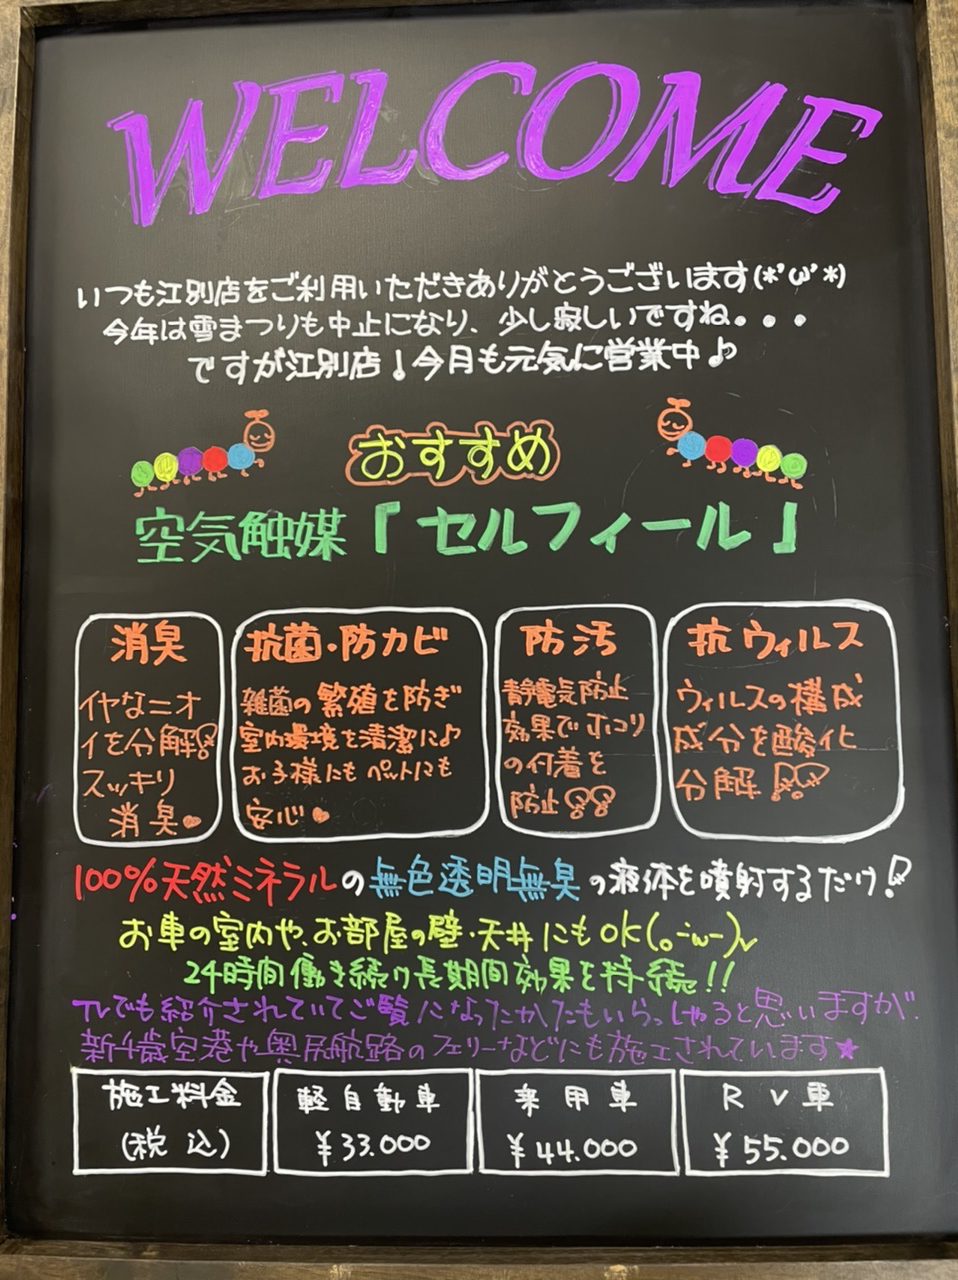 WELCOME
いつも江別店をご利用いただきありがとうございます(*'ω'*)
今年は雪まつりも中止になり、少し寂しいですね。。。
ですが江別店！今月も元気に営業中♪
おすすめ
空気触媒「セルフィール」
消臭
イヤなニオ
イを分解!!
スッキリ
消臭♥
抗菌・防カビ
雑菌の繁殖を防ぎ
室内環境を清潔に♪
お子様にもペットにも
安心♥
防汚
静電気防止
効果でホコリ
の付着を
防止!!
抗ウィルス
ウィルスの構成
成分を酸化
分解!!
100%天然ミネラルの無色透明無臭の液体を噴射するだけ！
お車の室内や、お部屋の壁・天井にもOK(。-ω-)v
24時間働き続け長期間効果を持続!!
TVでも紹介されていてご覧になったかたもいらっしゃると思いますが、
新千歳空港や奥尻航路のフェリーなどにも施工されています★
施工料金
(税込)
軽自動車
¥33.000
乗用車
¥44.000
RV車
¥55.000